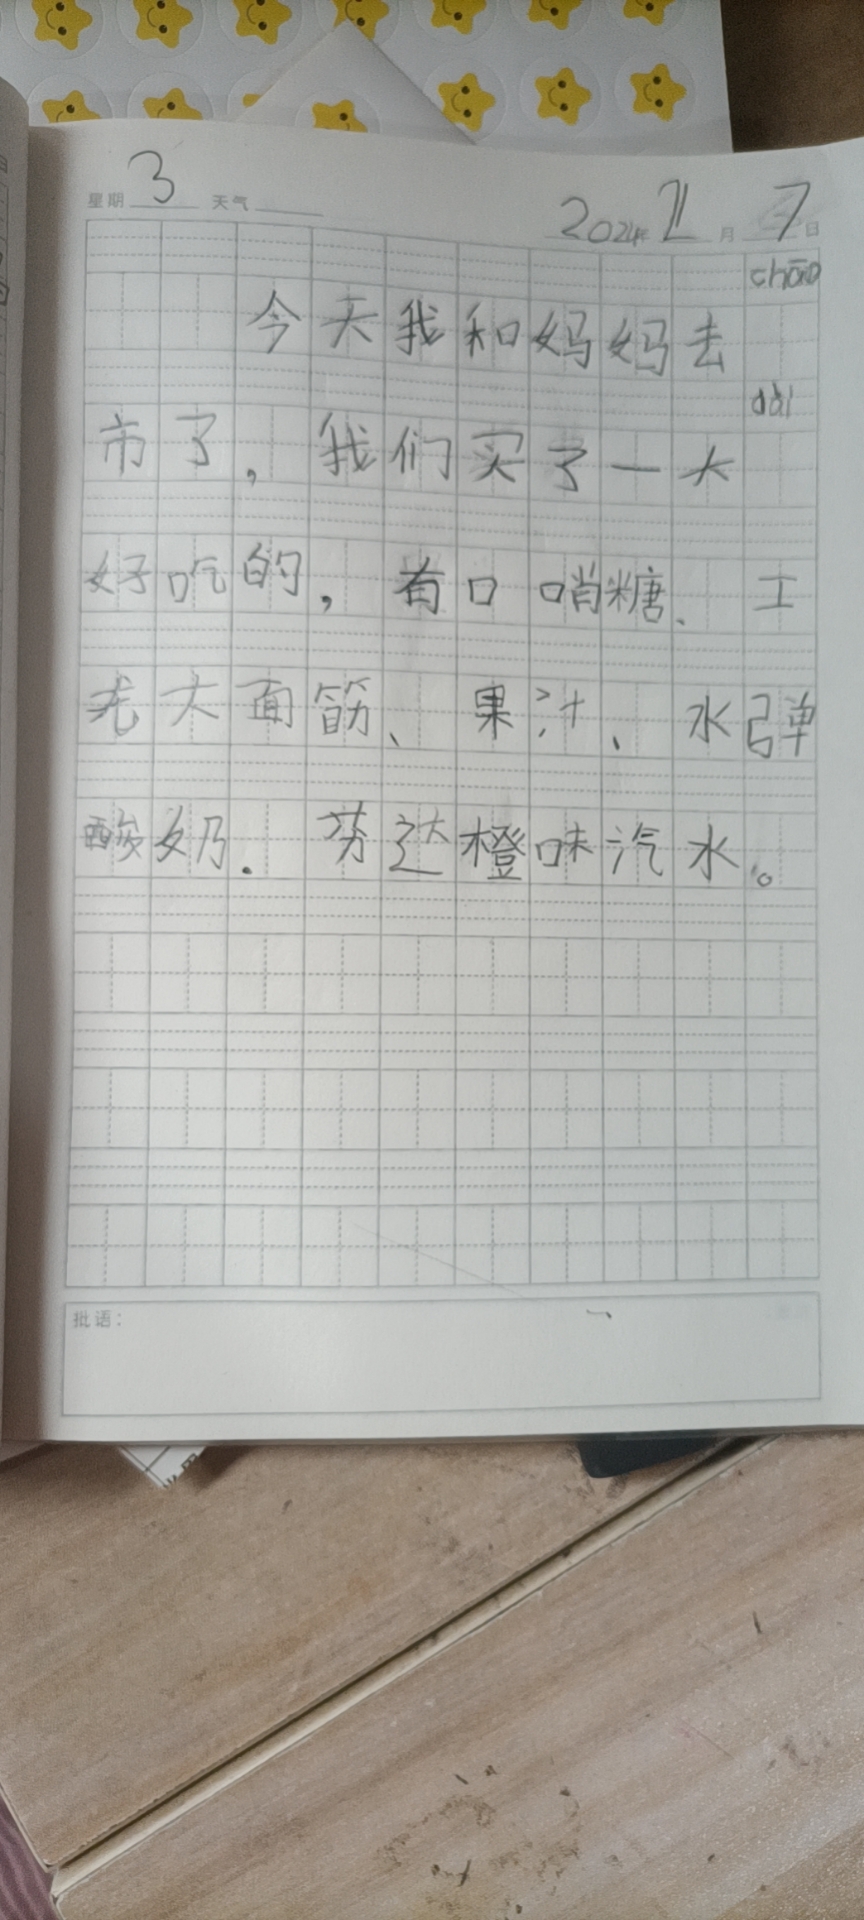 星期 3 天气 2024年 2月 7日
chāo
今天我和妈妈去
dài
市了，我们买了一大
好吃的，有口哨糖、工
老大面筋、果汁、水弹
酸奶. 芬达橙味汽水。
批语：